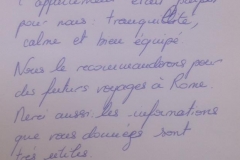 l'appartement était parfait
pour nous : tranquillité,
calme et bien équipé
Nous le recommanderons pour
des futurs voyages à Rome.
Merci aussi: les informations
que vous données sont
très utiles.